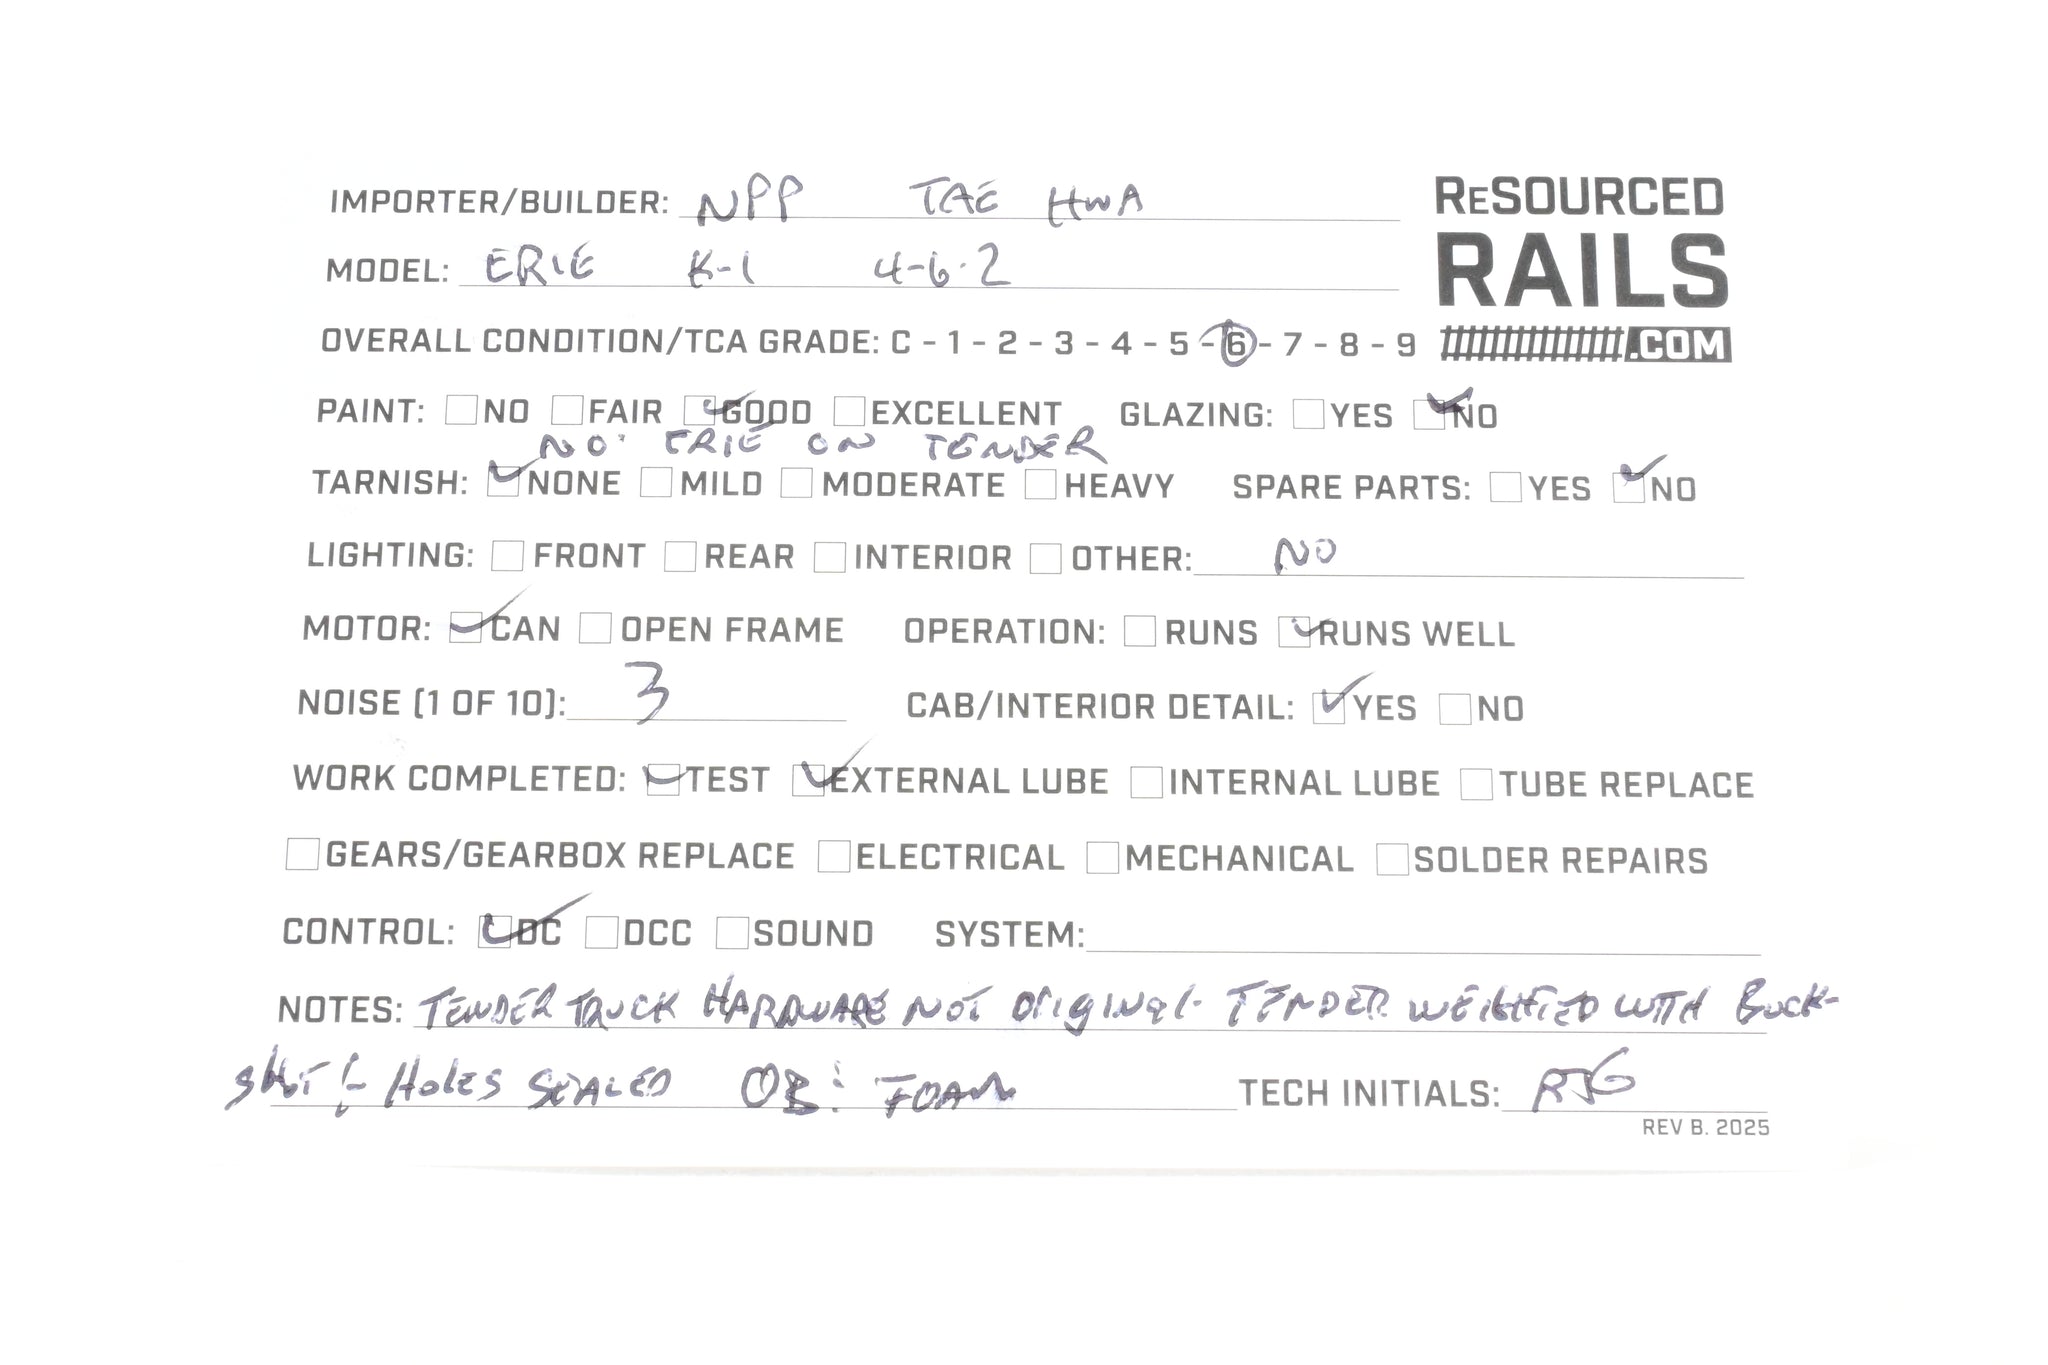 IMPORTER/BUILDER: NPP TAE HWA
RESOURCED
RAILS
.COM
MODEL: ERIE K-1 4-6-2
OVERALL CONDITION/TCA GRADE: C - 1 - 2 - 3 - 4 - 5 - 6 - 7 - 8 - 9
PAINT: NO FAIR GOOD EXCELLENT GLAZING: YES NO
NO ERIE ON TENDER
TARNISH: NONE MILD MODERATE HEAVY SPARE PARTS: YES NO
LIGHTING: FRONT REAR INTERIOR OTHER: NO
MOTOR: CAN OPEN FRAME OPERATION: RUNS RUNS WELL
NOISE (1 OF 10): 3 CAB/INTERIOR DETAIL: YES NO
WORK COMPLETED: TEST EXTERNAL LUBE INTERNAL LUBE TUBE REPLACE
GEARS/GEARBOX REPLACE ELECTRICAL MECHANICAL SOLDER REPAIRS
CONTROL: DC DCC SOUND SYSTEM:
NOTES: TENDER TRUCK HARDWARE NOT ORIGINAL. TENDER WEIGHTED WITH BUCK-
SHOT & HOLES SEALED OB: FOAM TECH INITIALS: RJG
REV B. 2025